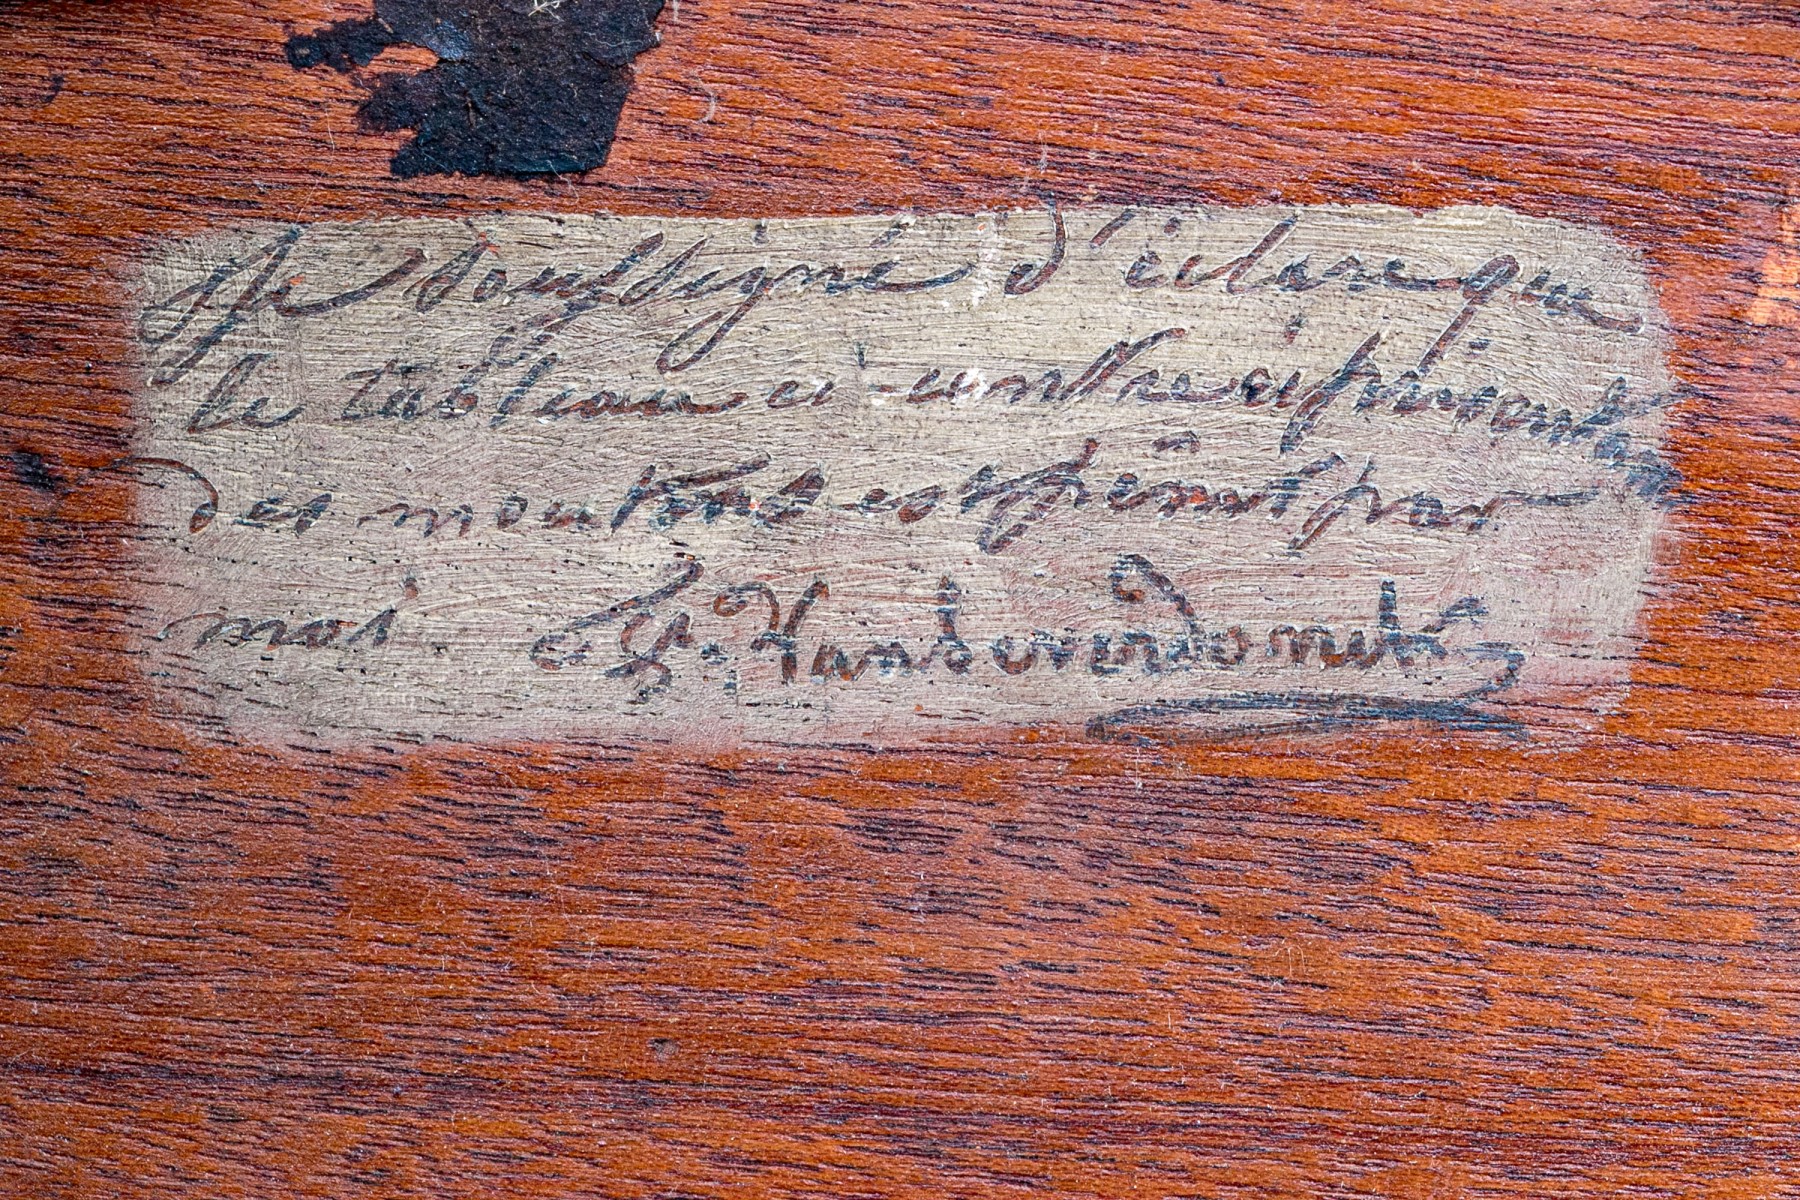 Je soussigné déclare que
le tableau ci-contre représentant
des moutons est peint par
moi.